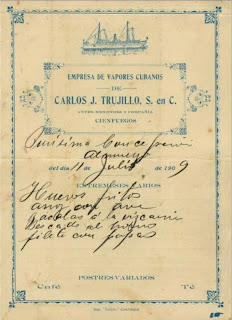 EMPRESA DE VAPORES CUBANOS
DE
CARLOS J. TRUJILLO, S. en C.
ANTES, MENENDEZ Y COMPAÑIA
CIENFUEGOS
Purísima Concepción
Almuerzo
del día 11 de Julio de 1909
ENTREMESES VARIOS
Huevos fritos
arroz con
a la vizcaina
Pescado al horno
filete con papas
POSTRES VARIADOS
Café Té